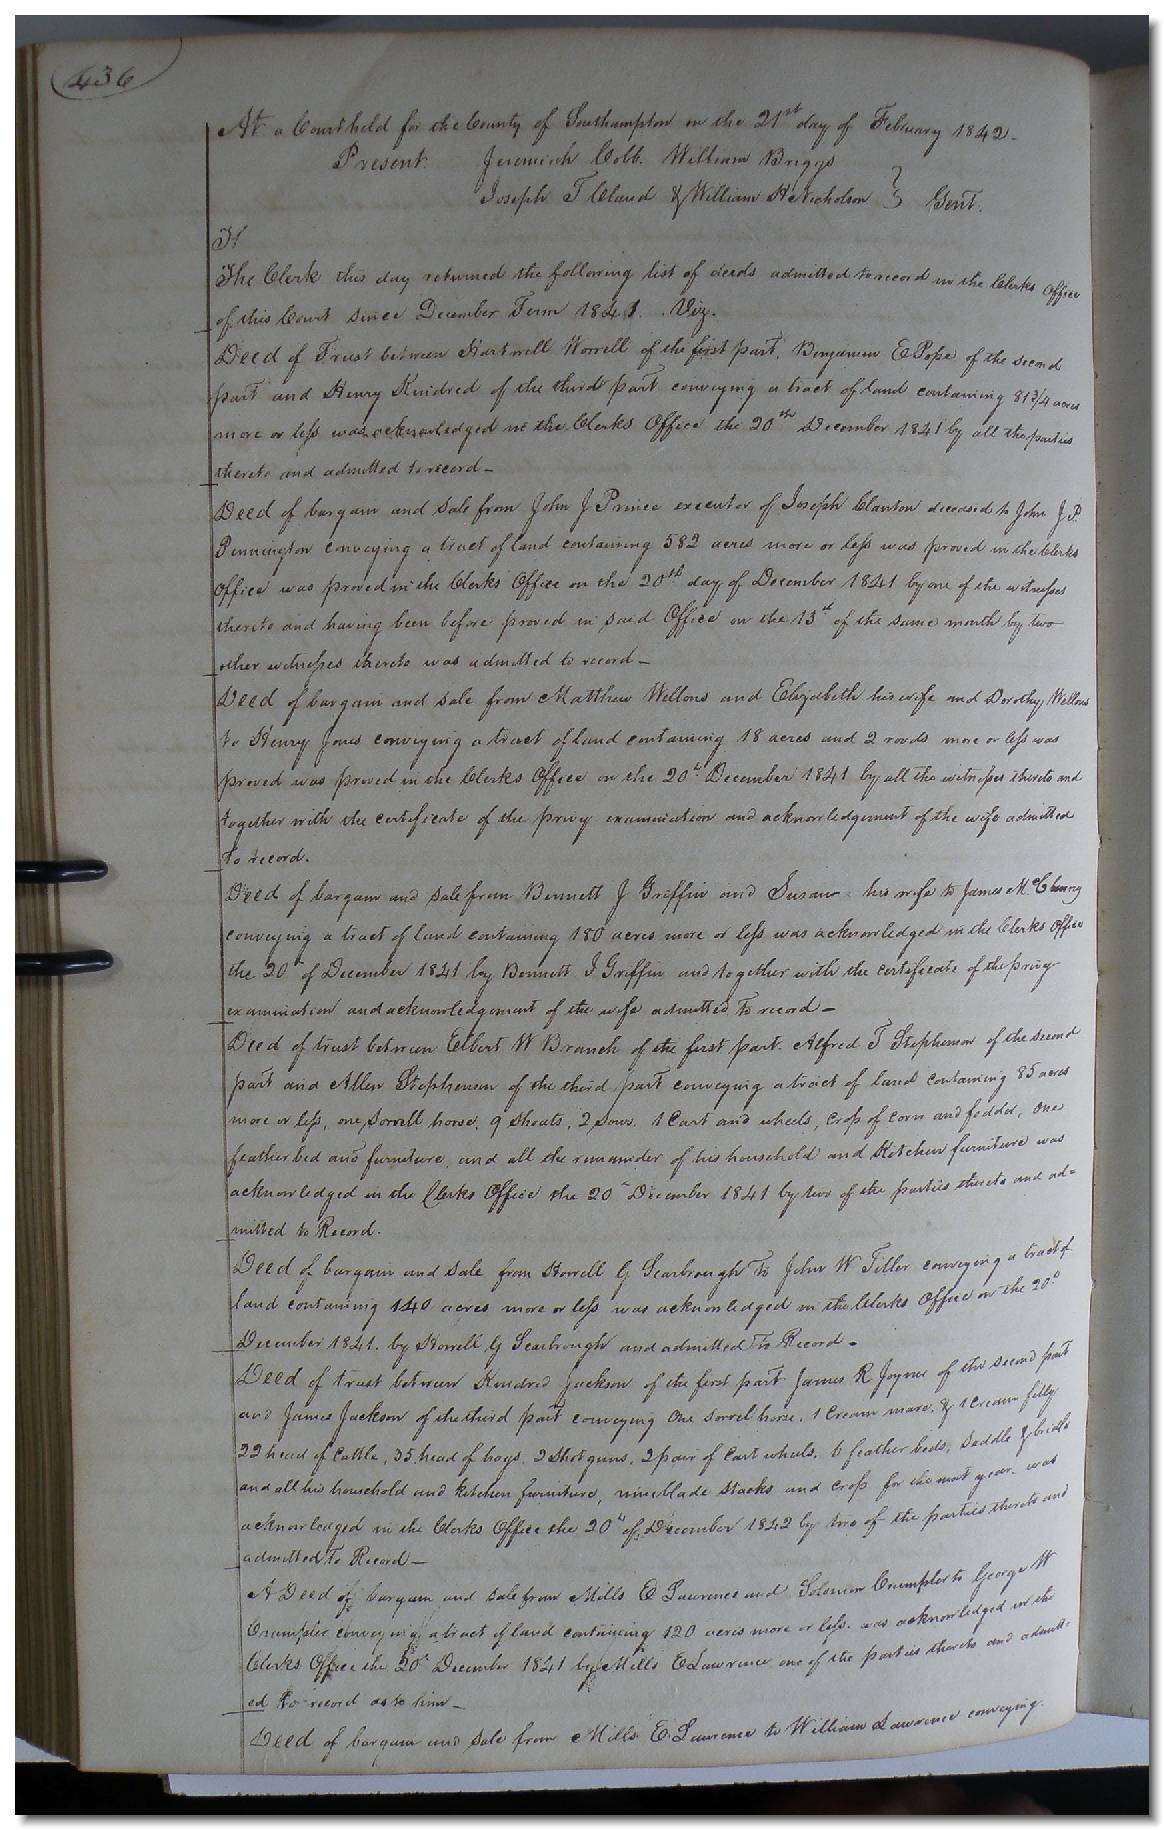 436
At a Court held for the County of Southampton on the 21st day of February 1842.
Present. Jeremiah Cobb. William Briggs
Joseph T Claud & William H Nicholson } Gent.
The Clerk this day returned the following list of deeds admitted to record in the Clerks Office
of this Court since December Term 1841. Viz.
Deed of Trust between Hartwell Worrell of the first part, Benjamin E Pope of the second
part and Henry Kindred of the third part conveying a tract of land containing 81 3/4 acres
more or less was acknowledged in the Clerks Office the 20th December 1841 by all the parties
thereto and admitted to record-
Deed of bargain and sale from John J Prince executor of Joseph Clanton deceased to John J. P.
Pennington conveying a tract of land containing 582 acres more or less was proved in the Clerks
Office was proved in the Clerks Office on the 20th day of December 1841 by one of the witnesses
thereto and having been before proved in said Office on the 13th of the same month by two
other witnesses thereto was admitted to record-
Deed of bargain and sale from Matthew Wellons and Elizabeth his wife and Dorothy Wellons
to Henry Jones conveying a tract of land containing 18 acres and 2 roods more or less was
proved was proved in the Clerks Office on the 20th December 1841 by all the witnesses thereto and
together with the certificate of the privy examination and acknowledgement of the wife admitted
to record.
Deed of bargain and sale from Bennett J Griffin and Susan his wife to James McChenny
conveying a tract of land containing 180 acres more or less was acknowledged in the Clerks Office
the 20th of December 1841 by Bennett J Griffin and together with the certificate of the privy
examination and acknowledgement of the wife admitted to record-
Deed of trust between Elbert W Branch of the first part. Alfred T Stephenson of the second
part and Allen Stephenson of the third part conveying a tract of land containing 85 acres
more or less, one sorrell horse, 9 shoats, 2 sows. 1 Cart and wheels, crop of corn and fodder, one
feather bed and furniture, and all the remainder of his household and Kitchen furniture was
acknowledged in the Clerks Office the 20th December 1841 by two of the parties thereto and ad=
mitted to Record.
Deed of bargain and sale from Howell G Scarbrough to John W Tiller conveying a tract of
land containing 140 acres more or less was acknowledged in the Clerks Office on the 20th
December 1841. by Howell G Scarbrough and admitted to Record-
Deed of trust between Kindred Jackson of the first part James R Joyner of the second part
and James Jackson of the third part conveying One sorrel horse, 1 Cream mare, & 1 Cream filly
22 head of Cattle, 35 head of hogs, 2 shot guns, 2 pair of Cart wheels, 6 feather beds, saddle & bridle
and all his household and kitchen furniture, nine blade stacks and crop for the next year. was
acknowledged in the Clerks Office the 20th of December 1842 by two of the parties thereto and
admitted to Record-
A Deed of bargain and sale from Mills E Lawrence and Solomon Crumpler to George W
Crumpler conveying a tract of land containing 120 acres more or less. was acknowledged in the
Clerks Office the 20th December 1841 by Mills E Lawrence one of the parties thereto and admitt-
ed to record as to him-
Deed of bargain and sale from Mills E. Lawrence to William Lawrence conveying.